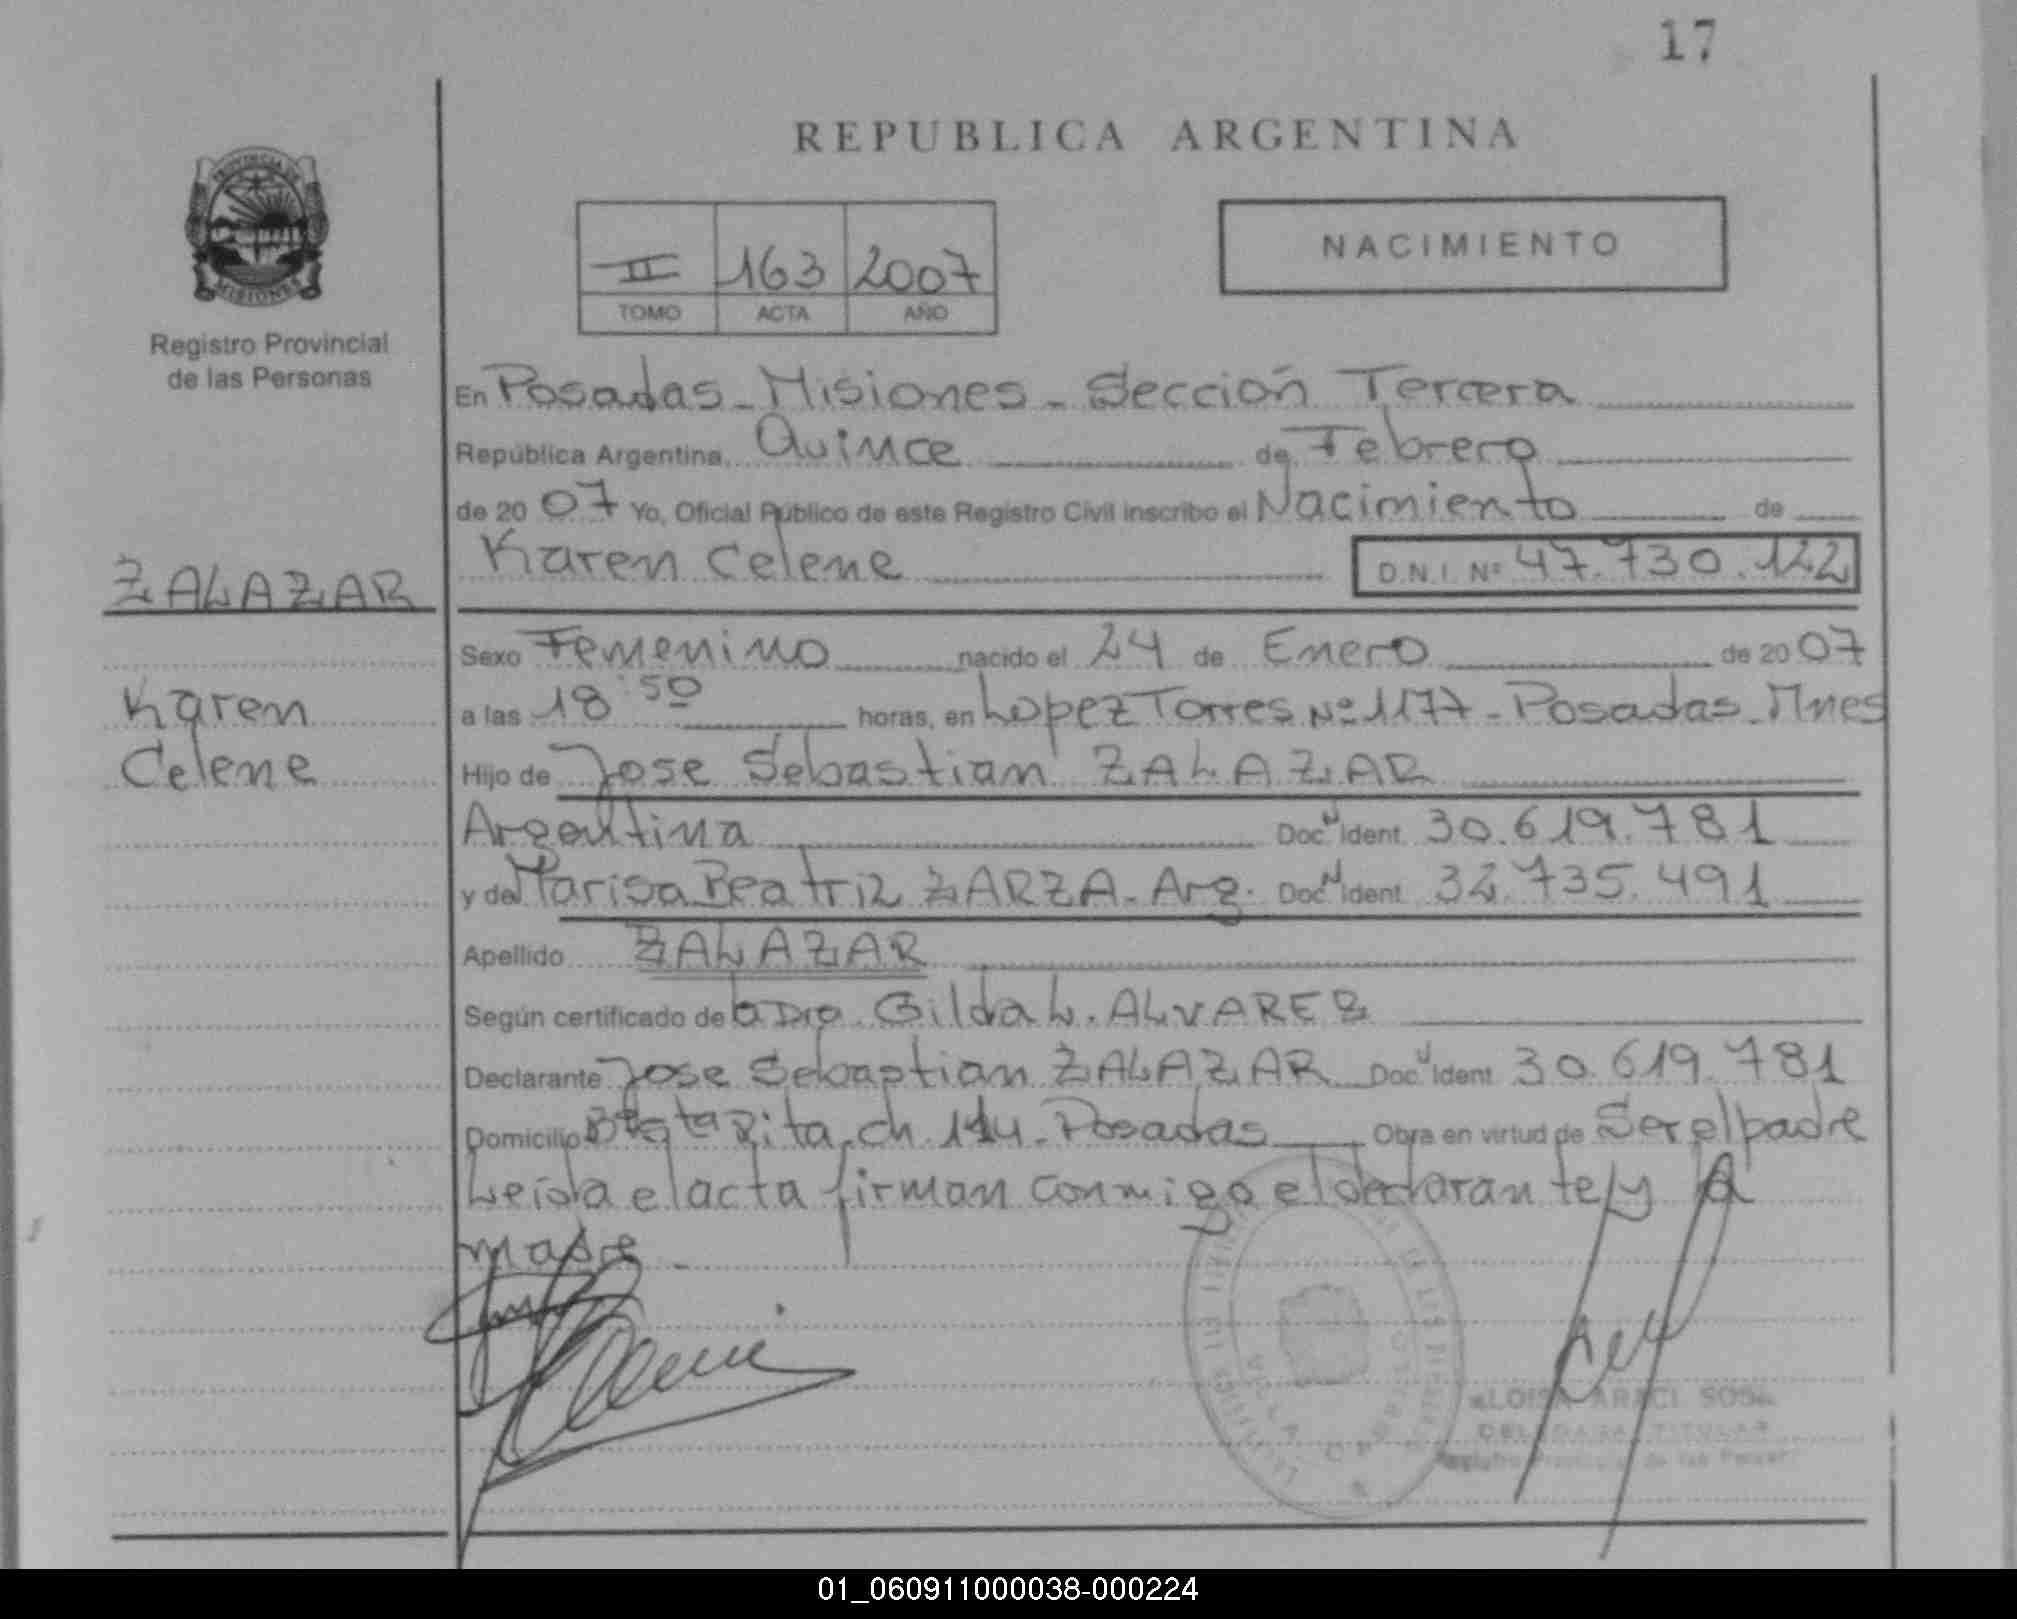 17
REPUBLICA ARGENTINA
PROVINCIA DE
MISIONES
Registro Provincial
de las Personas
II 163 2007
TOMO ACTA AÑO
NACIMIENTO
En Posadas - Misiones - Sección Tercera
República Argentina, Quince de Febrero
de 2007 Yo, Oficial Público de este Registro Civil inscribo el Nacimiento de
Karen Celene D.N.I. Nº 47.730.122
ZALAZAR
Karen
Celene
Sexo Femenino nacido el 24 de Enero de 2007
a las 18:50 horas, en Lopez Torres Nº 1177 - Posadas - Mnes
Hijo de Jose Sebastian ZALAZAR
Argentina Doc N Ident. 30.619.781
y de Marisa Beatriz ZARZA - Arg. Doc N Ident. 32.735.491
Apellido ZALAZAR
Según certificado de la Dra. Gilda L. ALVAREZ
Declarante Jose Sebastian ZALAZAR Doc N Ident 30.619.781
Domicilio Bº Sta Rita. ch. 114 - Posadas Obra en virtud de Ser el padre
Leída el acta firman conmigo el declarante y la
madre -
ARACI SOSA
TITULAR
01_060911000038-000224